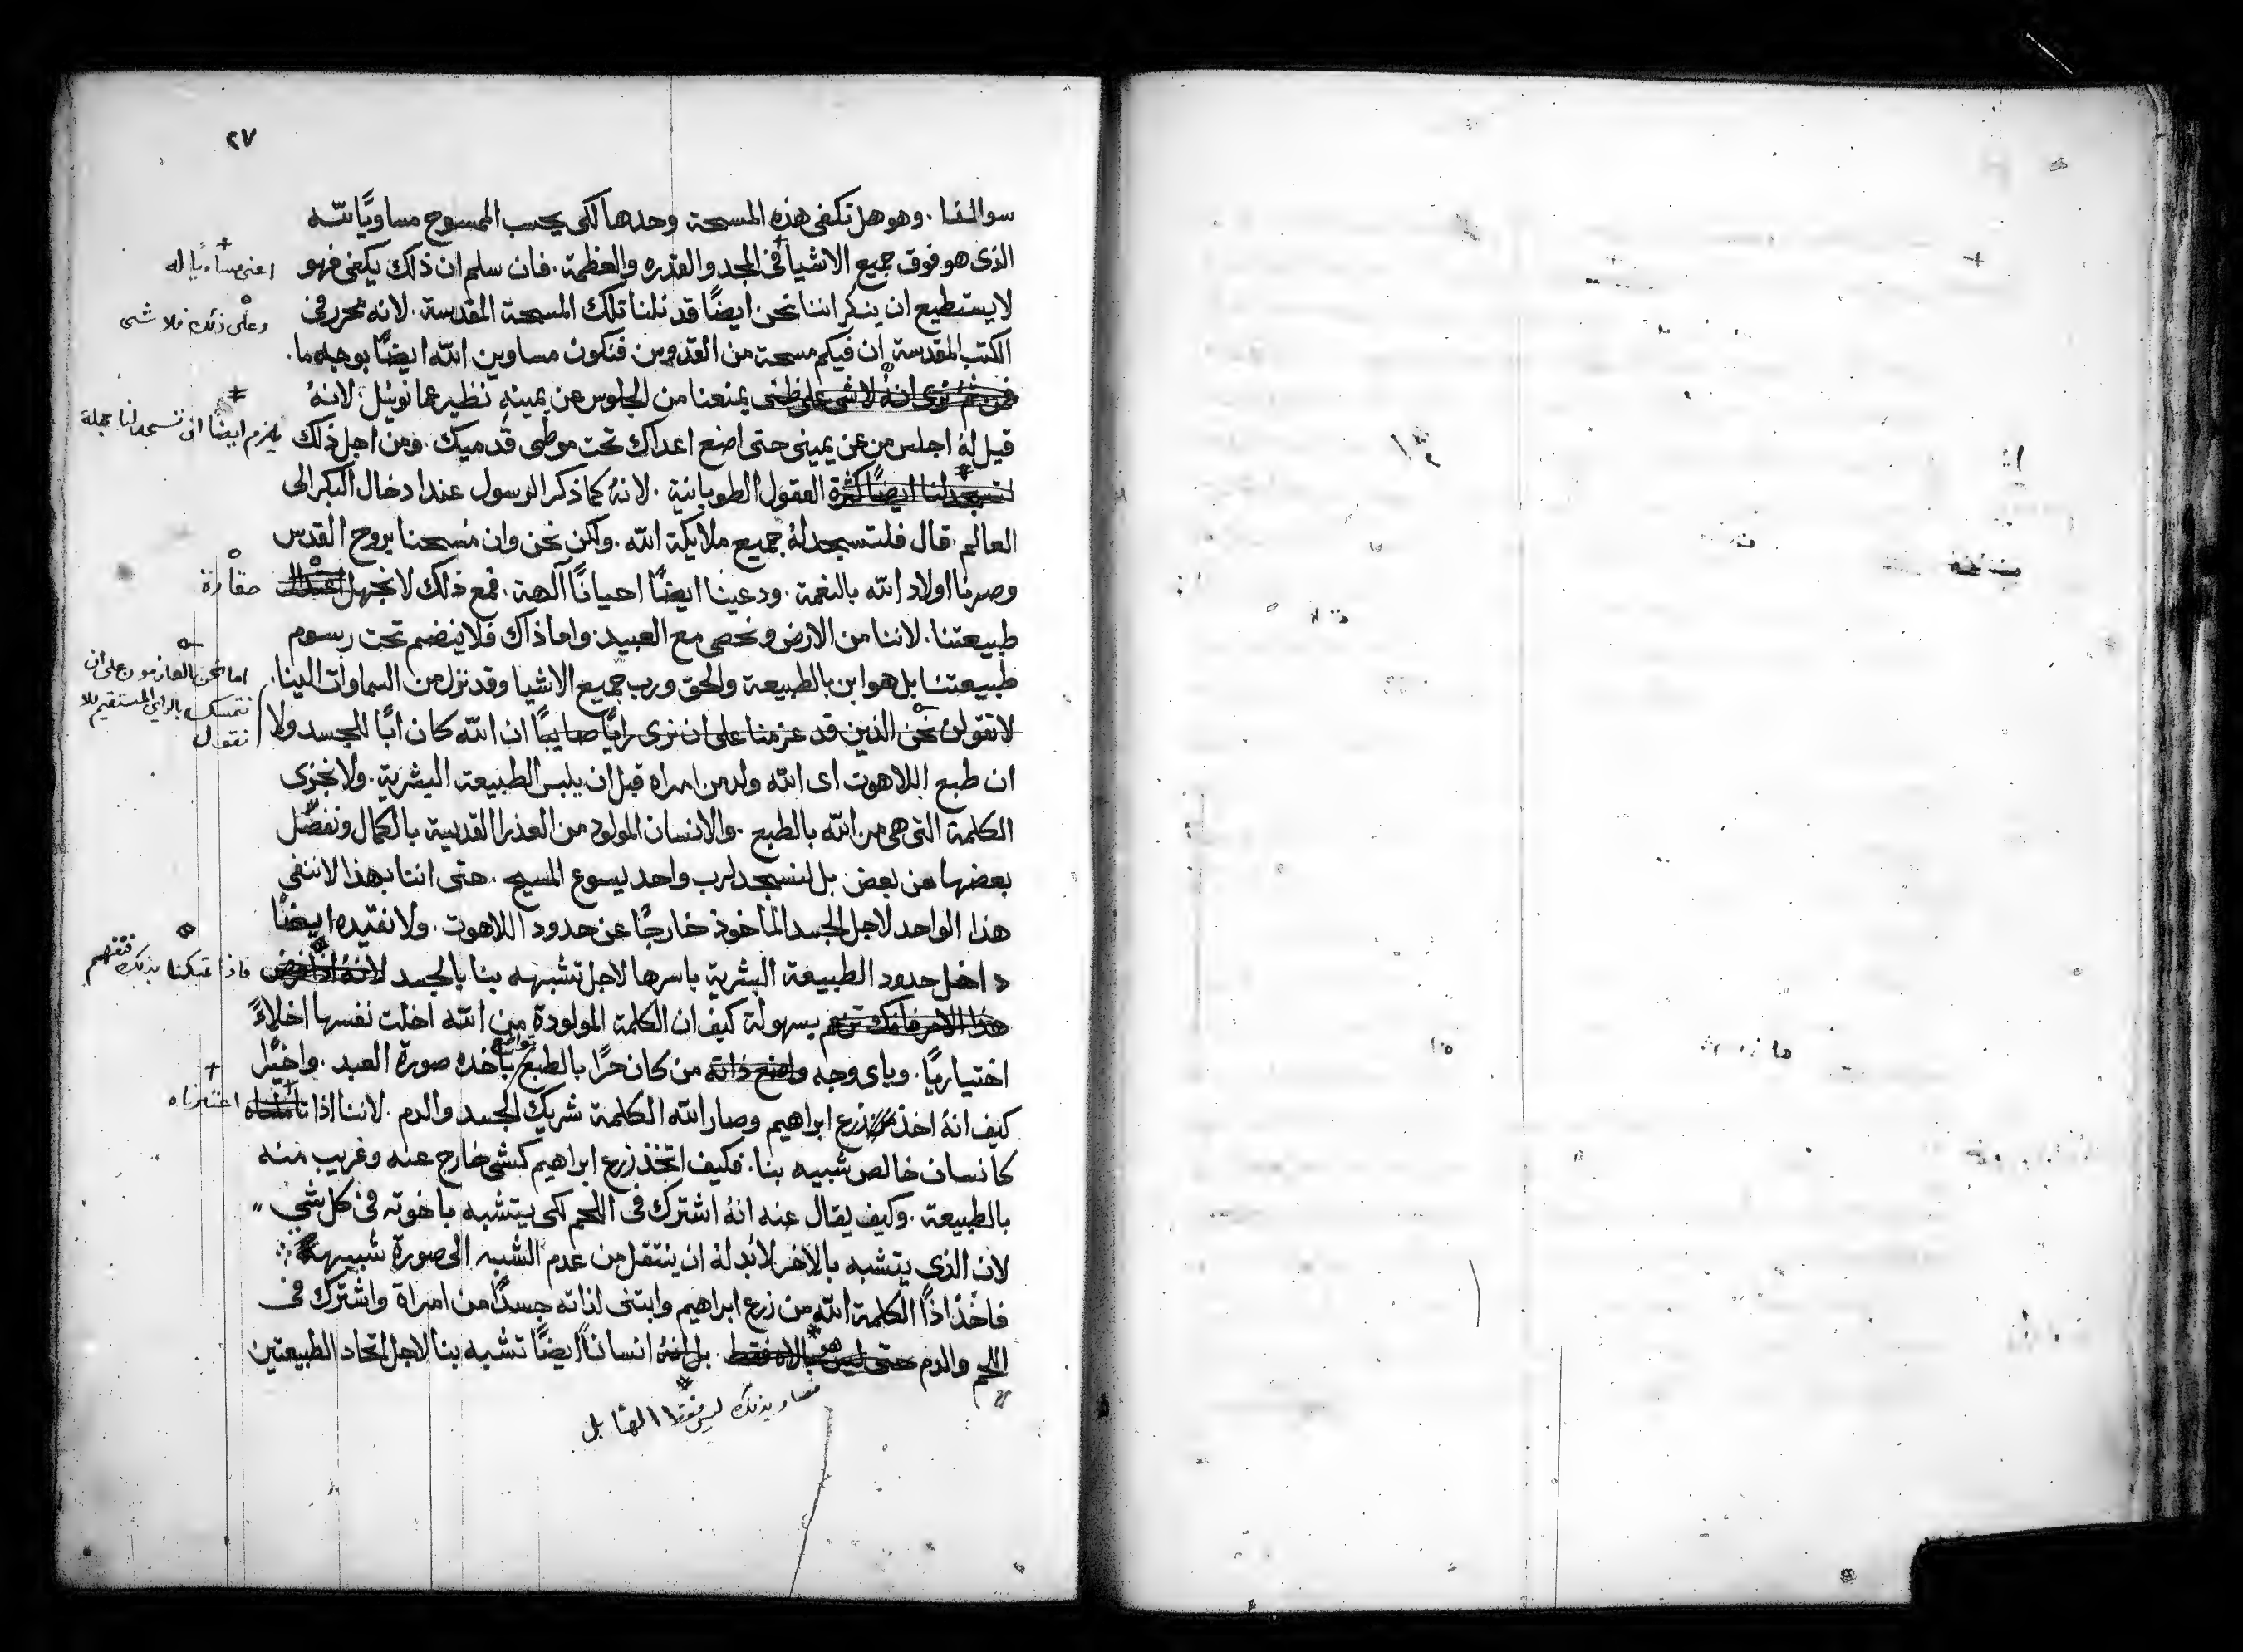 ٢٧
سوالنا . وهو هل تكفى هذه المسحة وحدها لكى يحسب الممسوح مساويًا لله
الذى هو فوق جميع الاشيا فى المجد والقدره والعظمة . فان سلم ان ذلك يكفى فهو
اعنى مساويا له
لا يستطيع ان ينكر اننا نحن ايضًا قد نلنا تلك المسحة المقدسة . لانه محرر فى
وعلى ذلك فلا شى
الكتب المقدسة ان فيكم مسحة من القدوس فنكون مساوين الله ايضًا بوجه ما .
فمن ثم نرى انه لا شى على ظنى يمنعنا من الجلوس عن يمينه نظير عمانوئيل . لانهُ
قيل لهُ اجلس من عن يمينى حتى اضع اعداك تحت موطى قدميك . ومن اجل ذلك
يلزم ايضًا ان تسجد لنا جملة
لتسجد لنا ايضًا كثرة العقول الطوبانية . لانهُ كما ذكر الرسول عند ادخال البكر الى
العالم . قال فلتسجد لهُ جميع ملايكة الله . ولكن نحن وان مُسحنا بروح القدس
وصرنا اولاد الله بالنعمة . ودعينا ايضًا احيانًا آلهة . فمع ذلك لا نجهل اعتدال
حقارة
طبيعتنا . لاننا من الارض ونحصى مع العبيد . واما ذاك فلا ينضم تحت رسوم
طبيعتنا بل هو ابن بالطبيعة والحق ورب جميع الاشيا وقد نزل من السماوات الينا .
اما نحن العازمون على ان
نتمسك بالراى المستقيم فلا
نقول
لا نقولن نحن الذين قد عزمنا على ان نرى رايًا صايبًا ان الله كان ابًا للجسد ولا
ان طبع اللاهوت اى الله ولد من امراه قبل ان يلبس الطبيعة البشرية . ولا نجزى
الكلمة التى هى من الله بالطبع . والانسان المولود من العذرا القديسة بالكمال ونفصّل
بعضها عن بعض بل لنسجد لرب واحد يسوع المسيح . حتى اننا بهذا لا ننفى
هذا الواحد لاجل الجسد الماخوذ خارجًا عن حدود اللاهوت . ولا نقيده ايضًا
داخل حدود الطبيعة البشرية باسرها لاجل تشبهه بنا بالجسد لانهُ اذا فرض
فاذا تمسكنا بذلك فنفهم
هذا الامر فانك تزعم بسهولة كيف ان الكلمة المولودة من الله اخلت نفسها اخلاءً
اختياريًا . وباى وجه واضع ذاته من كان حرًا بالطبع باخده صورة العبد . واخيرًا
تواضع
كيف انهُ اخذ من زرع ابراهيم وصار الله الكلمة شريك الجسد والدم . لاننا اذا تاملناه
اعتبرناه
كانسان خالص شبيه بنا . فكيف اتخذ زرع ابراهيم كشى خارج عنه وغريب منه
بالطبيعة . وكيف يقال عنه انهُ اشترك فى اللحم لكى يتشبه باخوته فى كل شى
لان الذى يتشبه بالاخر لابد لهُ ان ينتقل من عدم الشبه الى صورة شبيهة
فاخذ اذًا الكلمة الله من زرع ابراهيم وابتنى لذاته جسدًا من امراة واشترك فى
اللحم والدم حتى ليس هو بالاه فقط . بل انهُ انسانًا ايضًا تشبه بنا لاجل اتحاد الطبيعتين
فصار بذلك ليس فقط الهًا بل